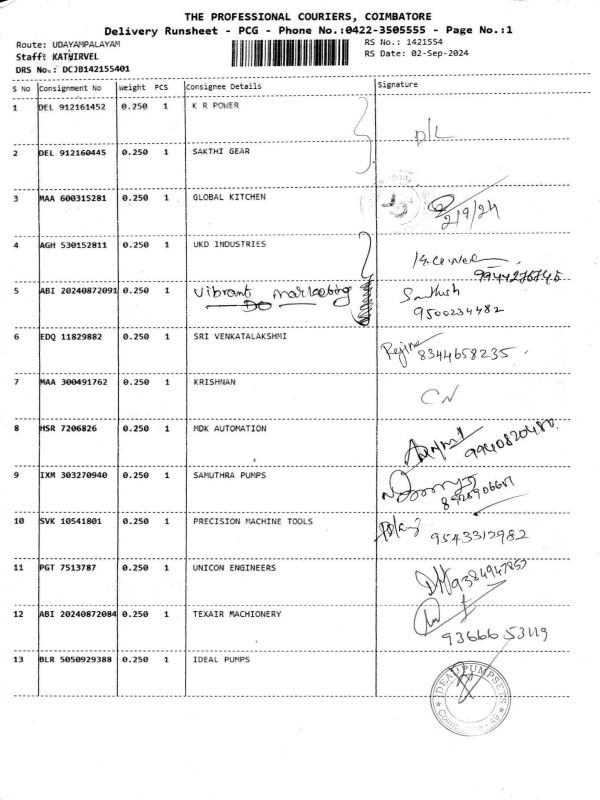 THE PROFESSIONAL COURIERS, COIMBATORE
Delivery Runsheet - PCG - Phone No.:0422-3505555 - Page No.:1
Route: UDAYAMPALAYAM RS No.: 1421554
Staff: KATHIRVEL RS Date: 02-Sep-2024
DRS No.: DCJB142155401
S No Consignment No Weight PCS Consignee Details Signature
1 DEL 912161452 0.250 1 K R POWER
D/L
2 DEL 912160445 0.250 1 SAKTHI GEAR
3 MAA 600315281 0.250 1 GLOBAL KITCHEN
2/9/24
4 AGH 530152811 0.250 1 UKD INDUSTRIES
9944276745
5 ABI 20240872091 0.250 1 Vibrant marketing Santhush
DO
9500234482
6 EDQ 11829882 0.250 1 SRI VENKATALAKSHMI
Rejina 8344658235
7 MAA 300491762 0.250 1 KRISHNAN
CN
8 HSR 7206826 0.250 1 MDK AUTOMATION
9940820480
9 IXM 303270940 0.250 1 SAMUTHRA PUMPS
10 SVK 10541801 0.250 1 PRECISION MACHINE TOOLS
9543312982
11 PGT 7513787 0.250 1 UNICON ENGINEERS
9384947857
12 ABI 20240872084 0.250 1 TEXAIR MACHIONERY
9366653119
13 BLR 5050929388 0.250 1 IDEAL PUMPS
IDEAL PUMPSETS
Coimbatore - 49